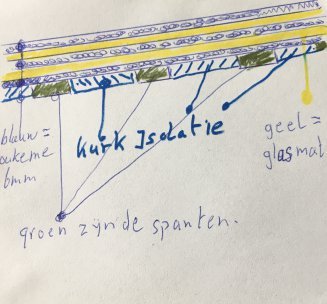 blauw =
okeme
6mm
kurk Isolatie
geel =
glasmat
groen zijnde spanten.